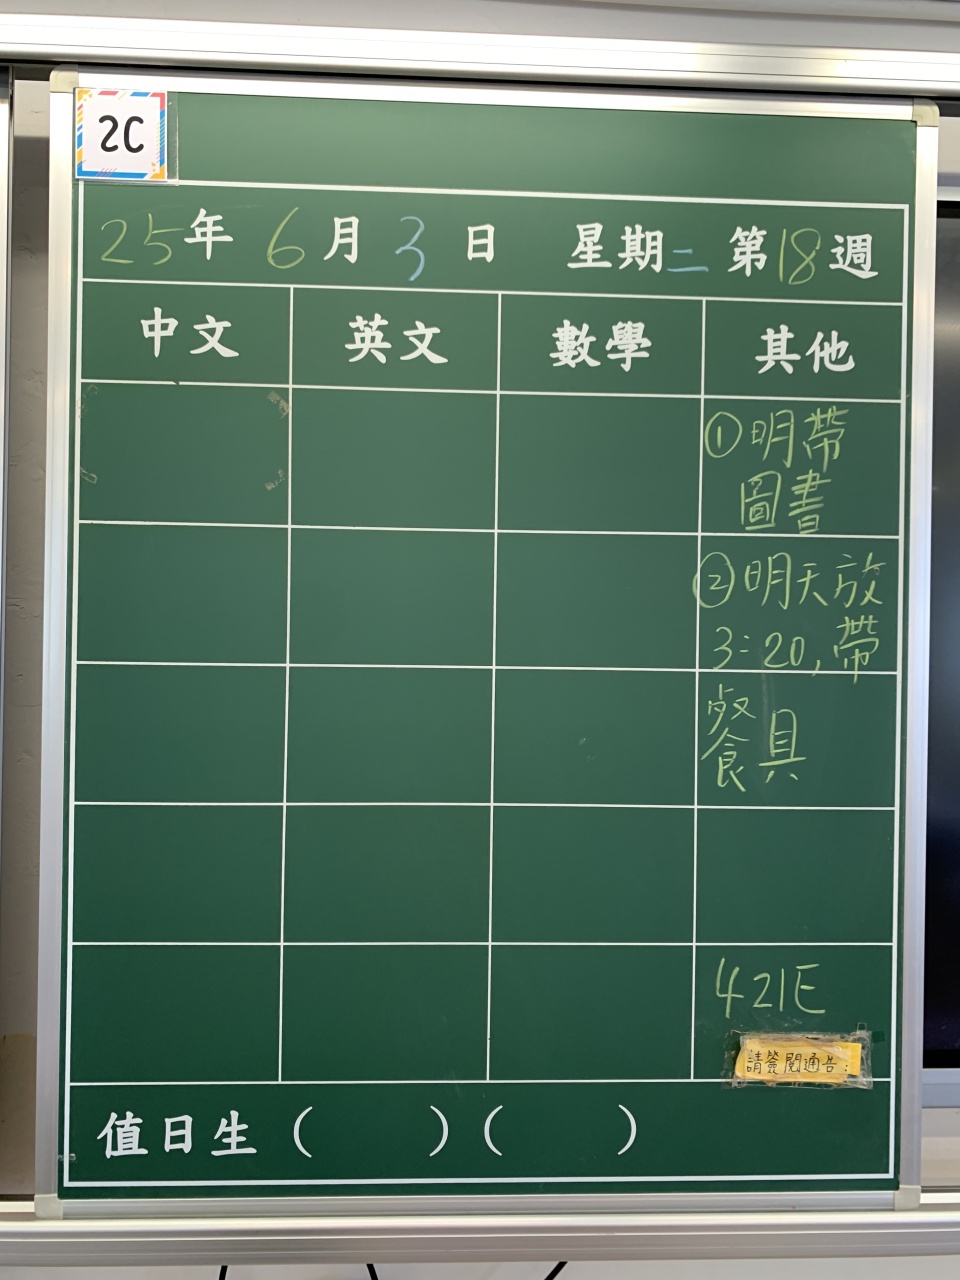 2C
25年 6月 3日 星期二 第18週
中文 英文 數學 其他
①明帶
圖書
②明天放
3:20,帶
餐具
421E
請簽閱通告:
值日生( )( )